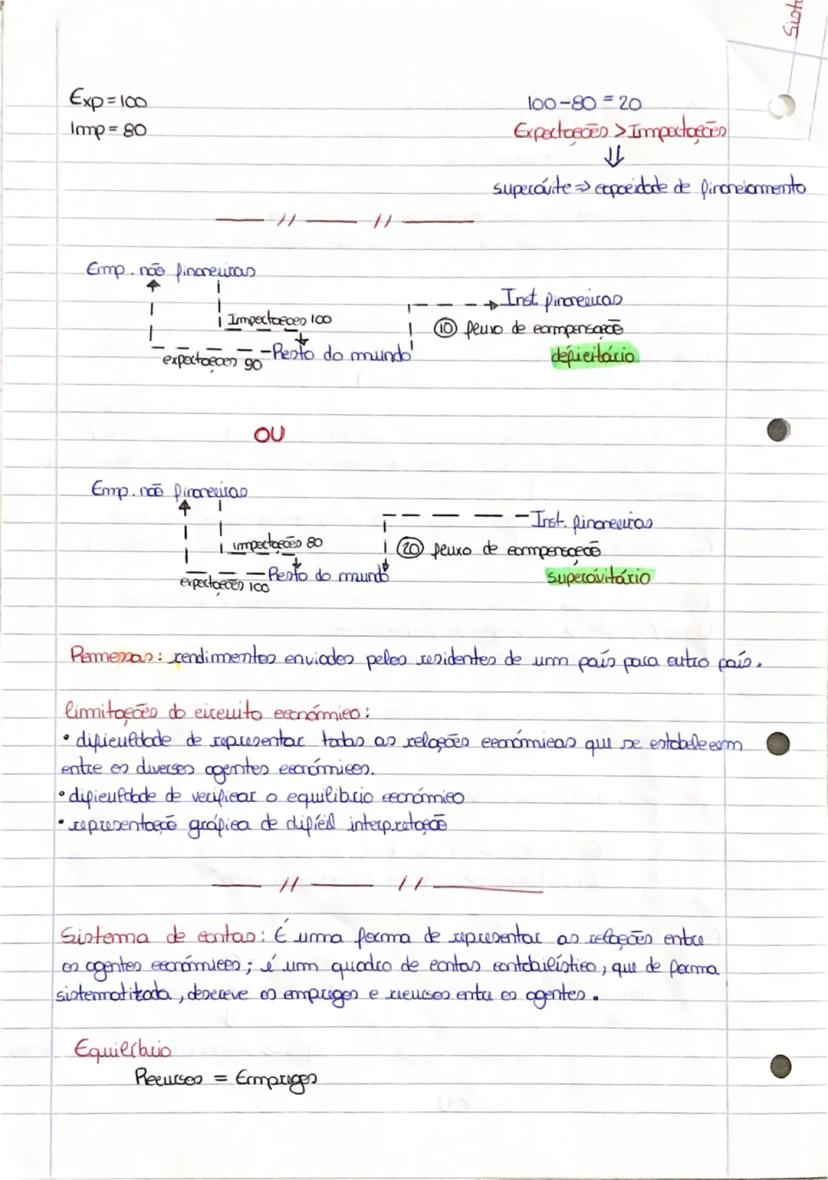 Sist
Exp = 100
100 - 80 = 20
Imp = 80
Exportações > Importações
⇓
superávite ⇒ capacidade de financiamento
Emp. não financeiras
Inst. financeiras
Importações 100
10 fluxo de compensação
exportações 90
Resto do mundo
deficitário
OU
Emp. não financeiras
Inst. financeiras
importações 80
20 fluxo de compensação
exportações 100
Resto do mundo
superávitário
Remessas: rendimentos enviados pelos residentes de um país para outro país.
limitações do circuito económico:
• dificuldade de representar todas as relações económicas que se estabelecem
entre os diversos agentes económicos.
• dificuldade de verificar o equilíbrio económico
• representação gráfica de difícil interpretação
Sistema de contas: É uma forma de representar as relações entre
os agentes económicos; é um quadro de contas contabilístico, que de forma
sistematizada, descreve os empregos e recursos entre os agentes.
Equilíbrio
Recursos = Empregos